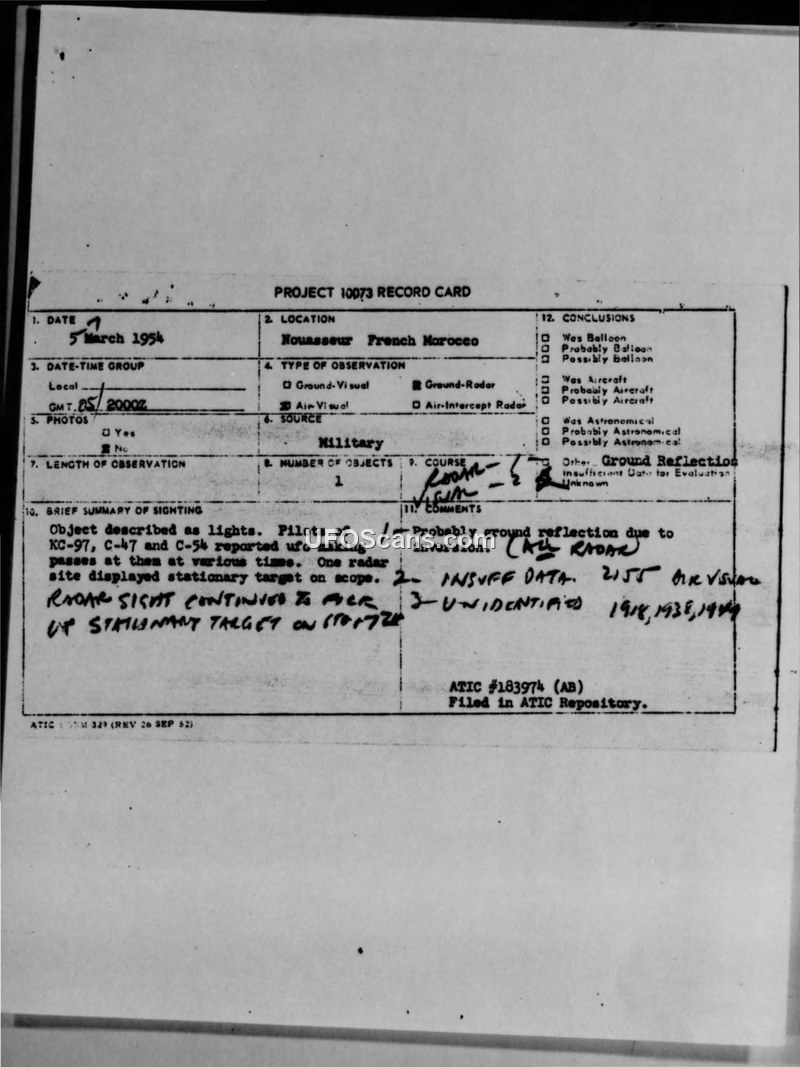 PROJECT 10073 RECORD CARD
1. DATE
5 March 1954
2. LOCATION
Nouasseur French Morocco
12. CONCLUSIONS
Was Balloon
Probably Balloon
Possibly Balloon
Was Aircraft
Probably Aircraft
Possibly Aircraft
Was Astronomical
Probably Astronomical
Possibly Astronomical
Other Ground Reflection
Insufficient Data for Evaluation
Unknown
3. DATE-TIME GROUP
Local
GMT 05/2000Z
4. TYPE OF OBSERVATION
Ground-Visual
Ground-Radar
Air-Visual
Air-Intercept Radar
5. PHOTOS
Yes
No
6. SOURCE
Military
7. LENGTH OF OBSERVATION
8. NUMBER OF OBJECTS
1
9. COURSE
RADAR - 1
VISUAL - 2
10. BRIEF SUMMARY OF SIGHTING
Object described as lights. Pilots of
KC-97, C-47 and C-54 reported ufo making
passes at them at various times. One radar
site displayed stationary target on scope.
RADAR SIGHT CONTINUED TO PICK
UP STATIONARY TARGET ON
11. COMMENTS
1- Probably ground reflection due to
inversion. (ALL RADAR)
2- INSUFF DATA. 2155 AIR VISUAL
3- UNIDENTIFIED
ATIC #183974 (AB)
Filed in ATIC Repository.
ATIC 329 (REV 26 SEP 52)
UFOScans.com